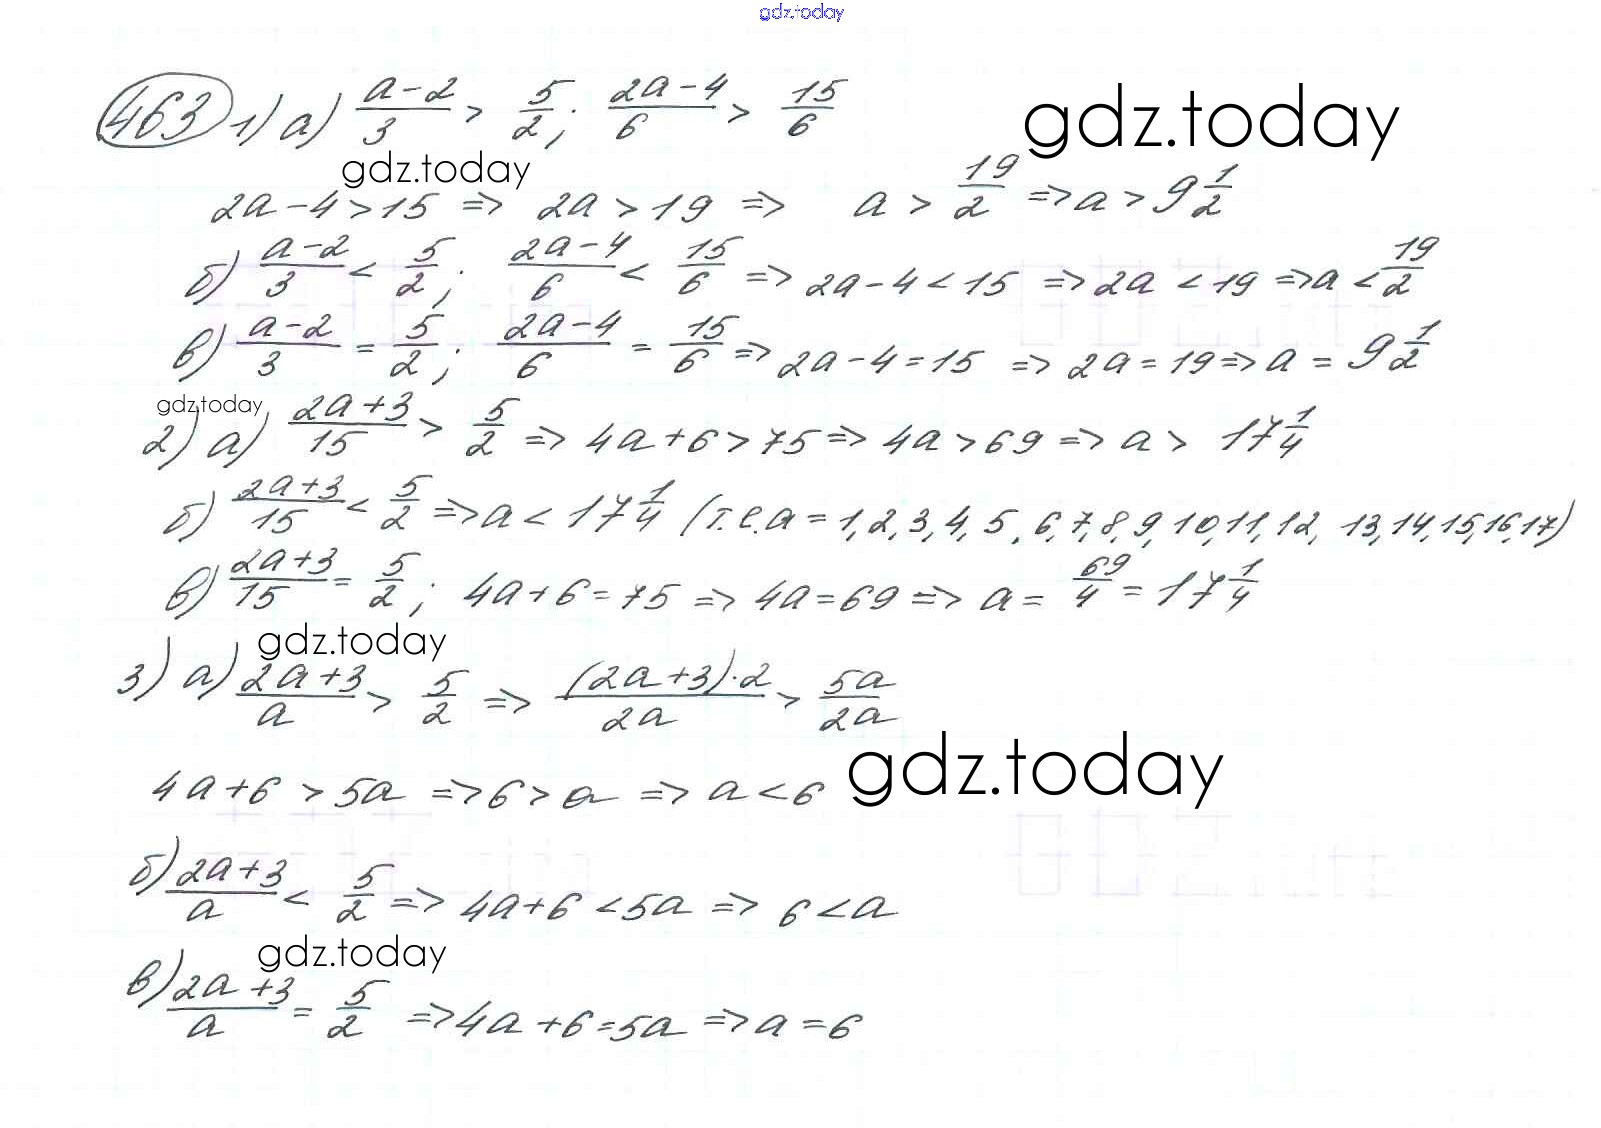 gdz.today
463 1) а) (a-2)/3 > 5/2; (2a-4)/6 > 15/6
gdz.today
gdz.today
2a-4>15 => 2a>19 => a > 19/2 => a > 9 1/2
б) (a-2)/3 < 5/2; (2a-4)/6 < 15/6 => 2a-4<15 => 2a<19 => a < 19/2
в) (a-2)/3 = 5/2; (2a-4)/6 = 15/6 => 2a-4=15 => 2a=19 => a = 9 1/2
gdz.today
2) а) (2a+3)/15 > 5/2 => 4a+6>75 => 4a>69 => a > 17 1/4
б) (2a+3)/15 < 5/2 => a < 17 1/4 (т.е. a = 1, 2, 3, 4, 5, 6, 7, 8, 9, 10, 11, 12, 13, 14, 15, 16, 17)
в) (2a+3)/15 = 5/2; 4a+6=75 => 4a=69 => a = 69/4 = 17 1/4
gdz.today
3) а) (2a+3)/a > 5/2 => ((2a+3)·2)/2a > 5a/2a
gdz.today
4a+6 > 5a => 6 > a => a < 6
б) (2a+3)/a < 5/2 => 4a+6 < 5a => 6 < a
gdz.today
в) (2a+3)/a = 5/2 => 4a+6=5a => a = 6